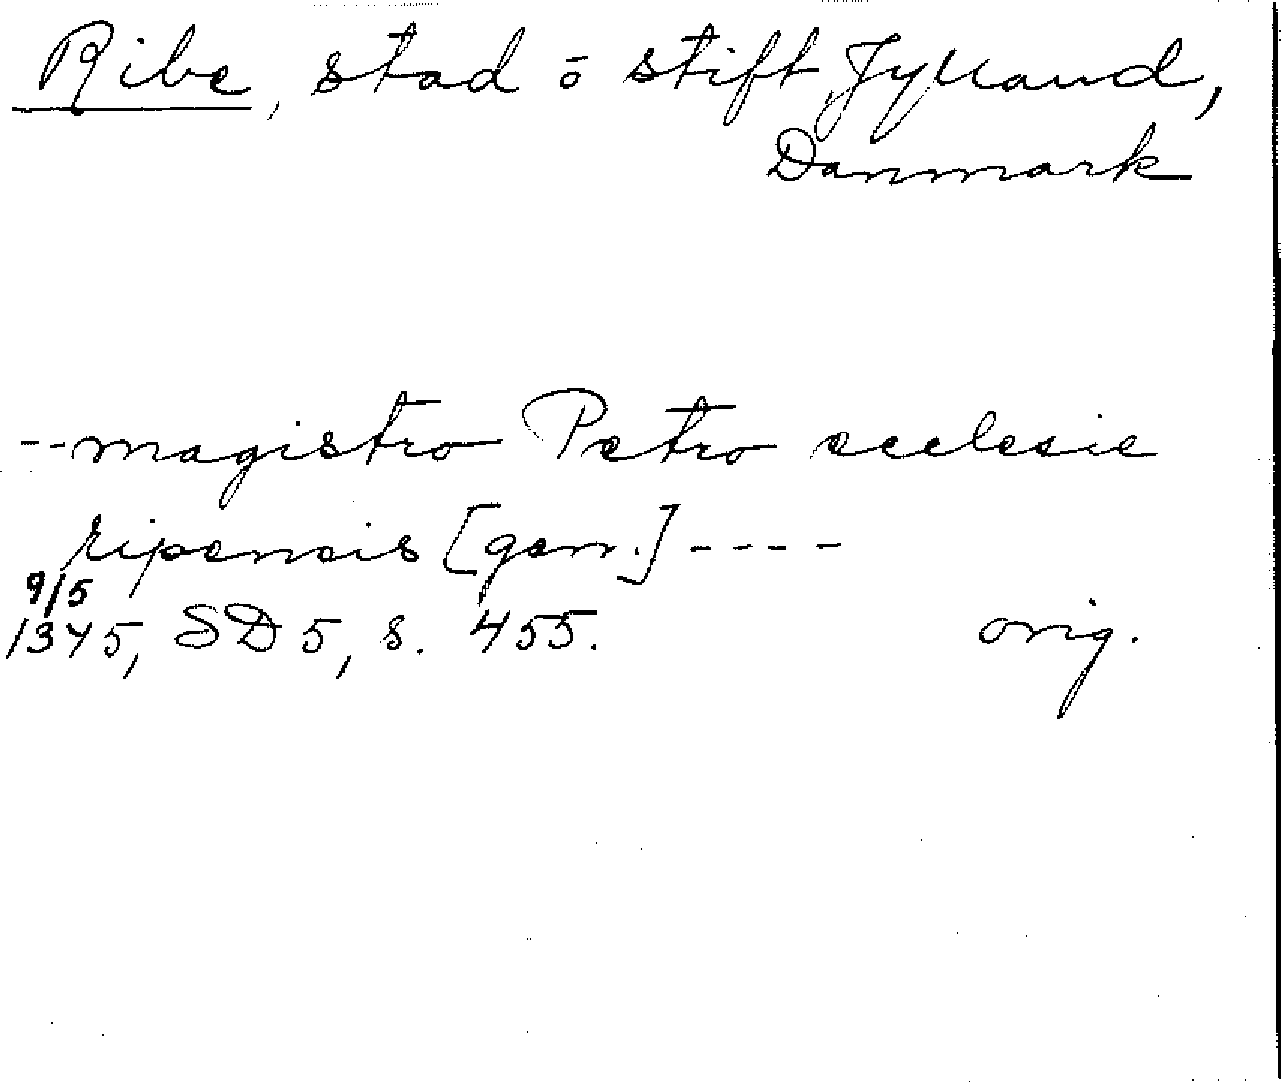 Ribe, stad o stift, Jylland,
Danmark
--magistro Petro ecclesie
ripensis [gen.] ----
9/5
1345, SD 5, s. 455. orig.